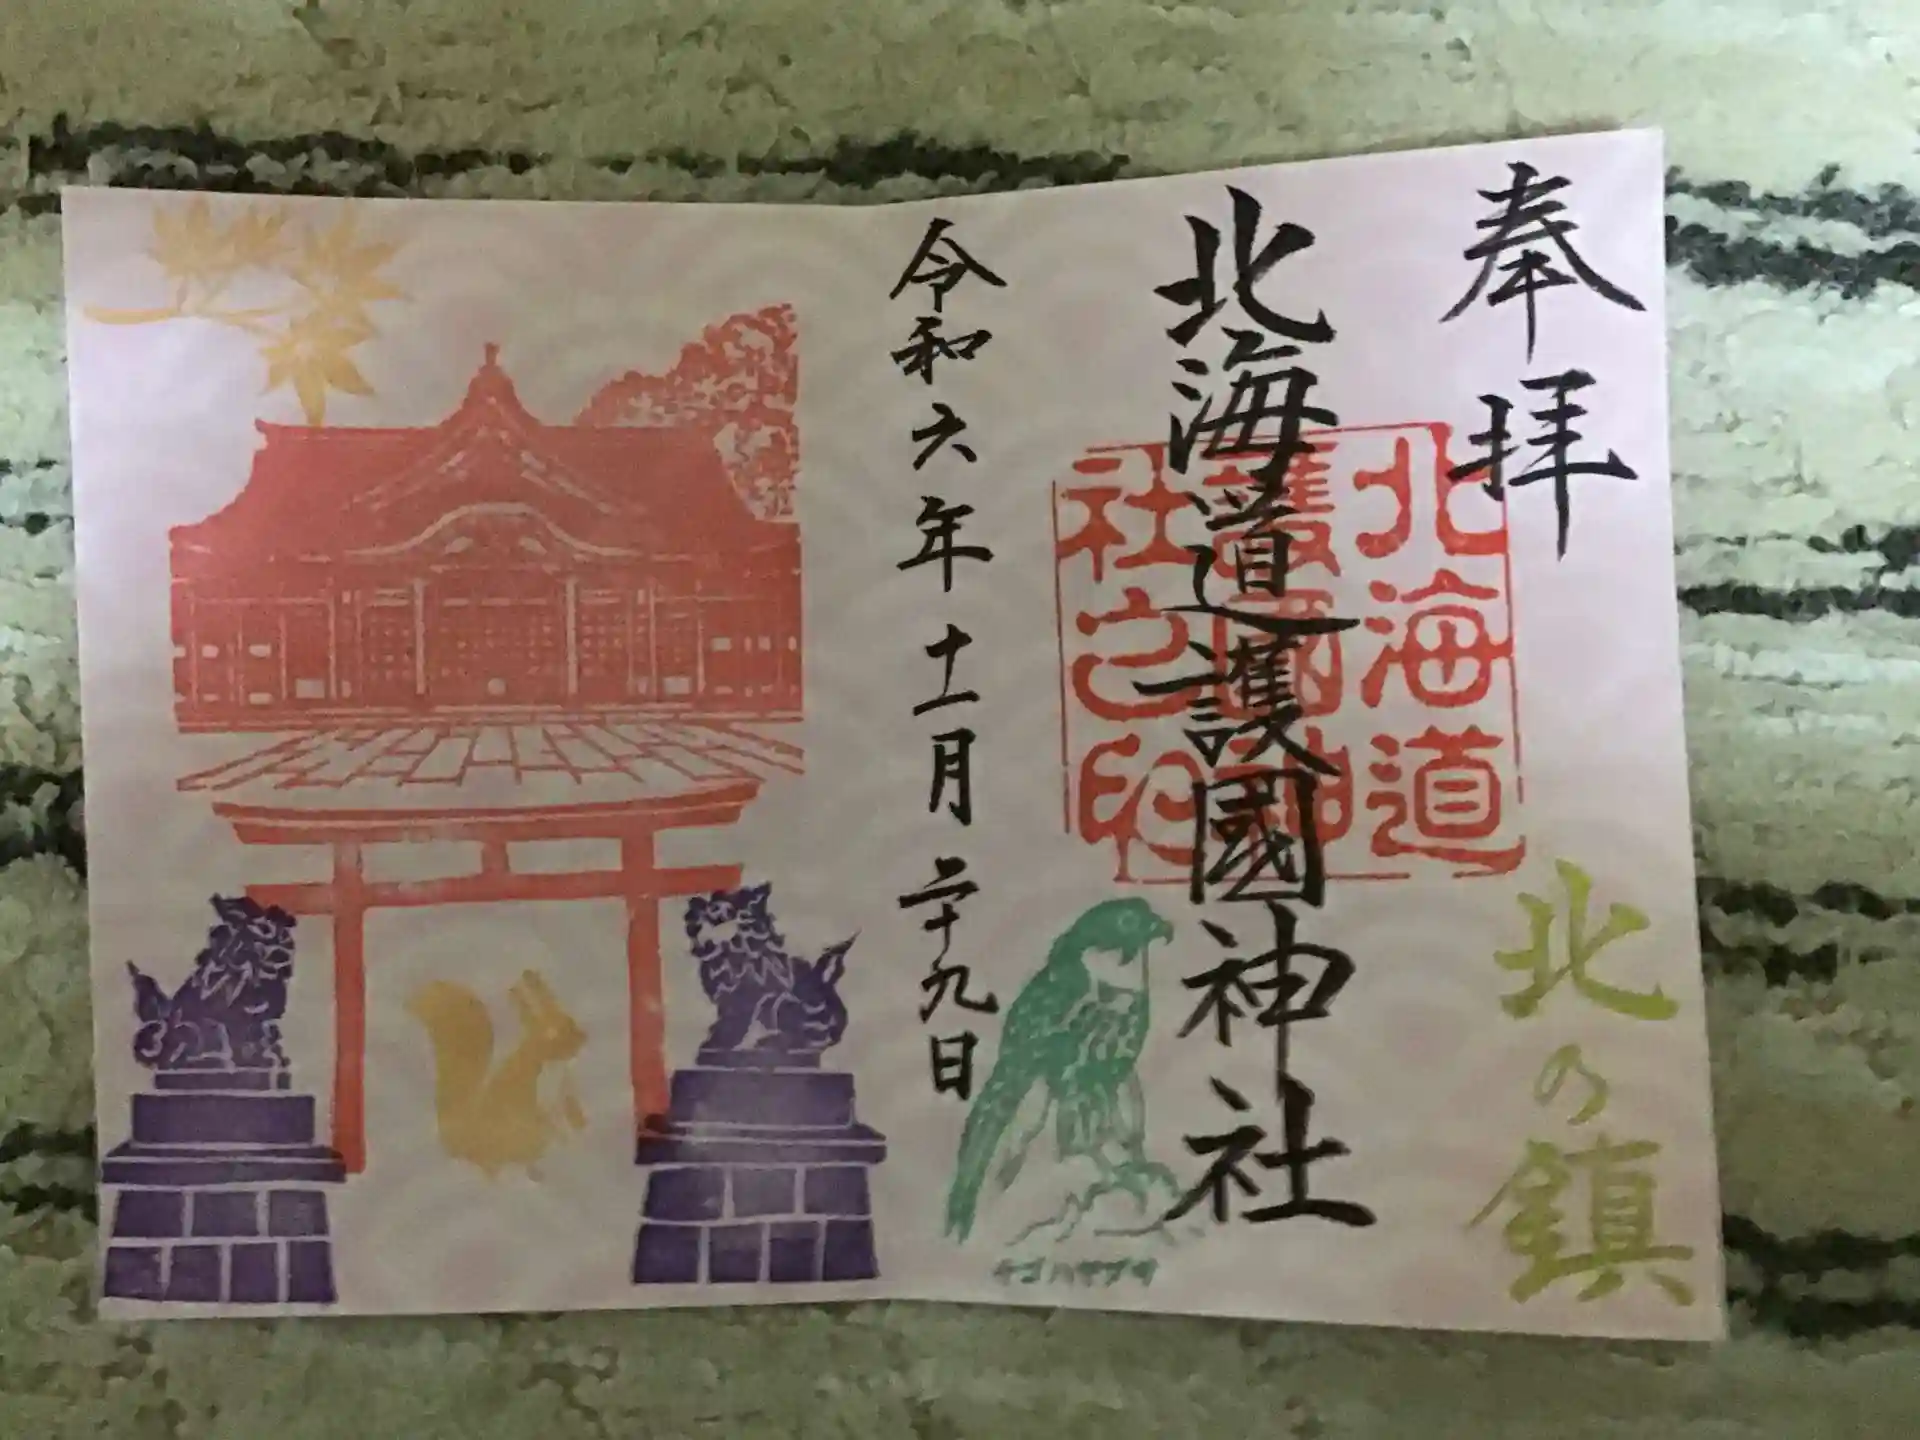 奉拝
北の鎮
北海道護國神社
北海道
護國神
社之印
令和六年十一月二十九日
チゴハヤブサ